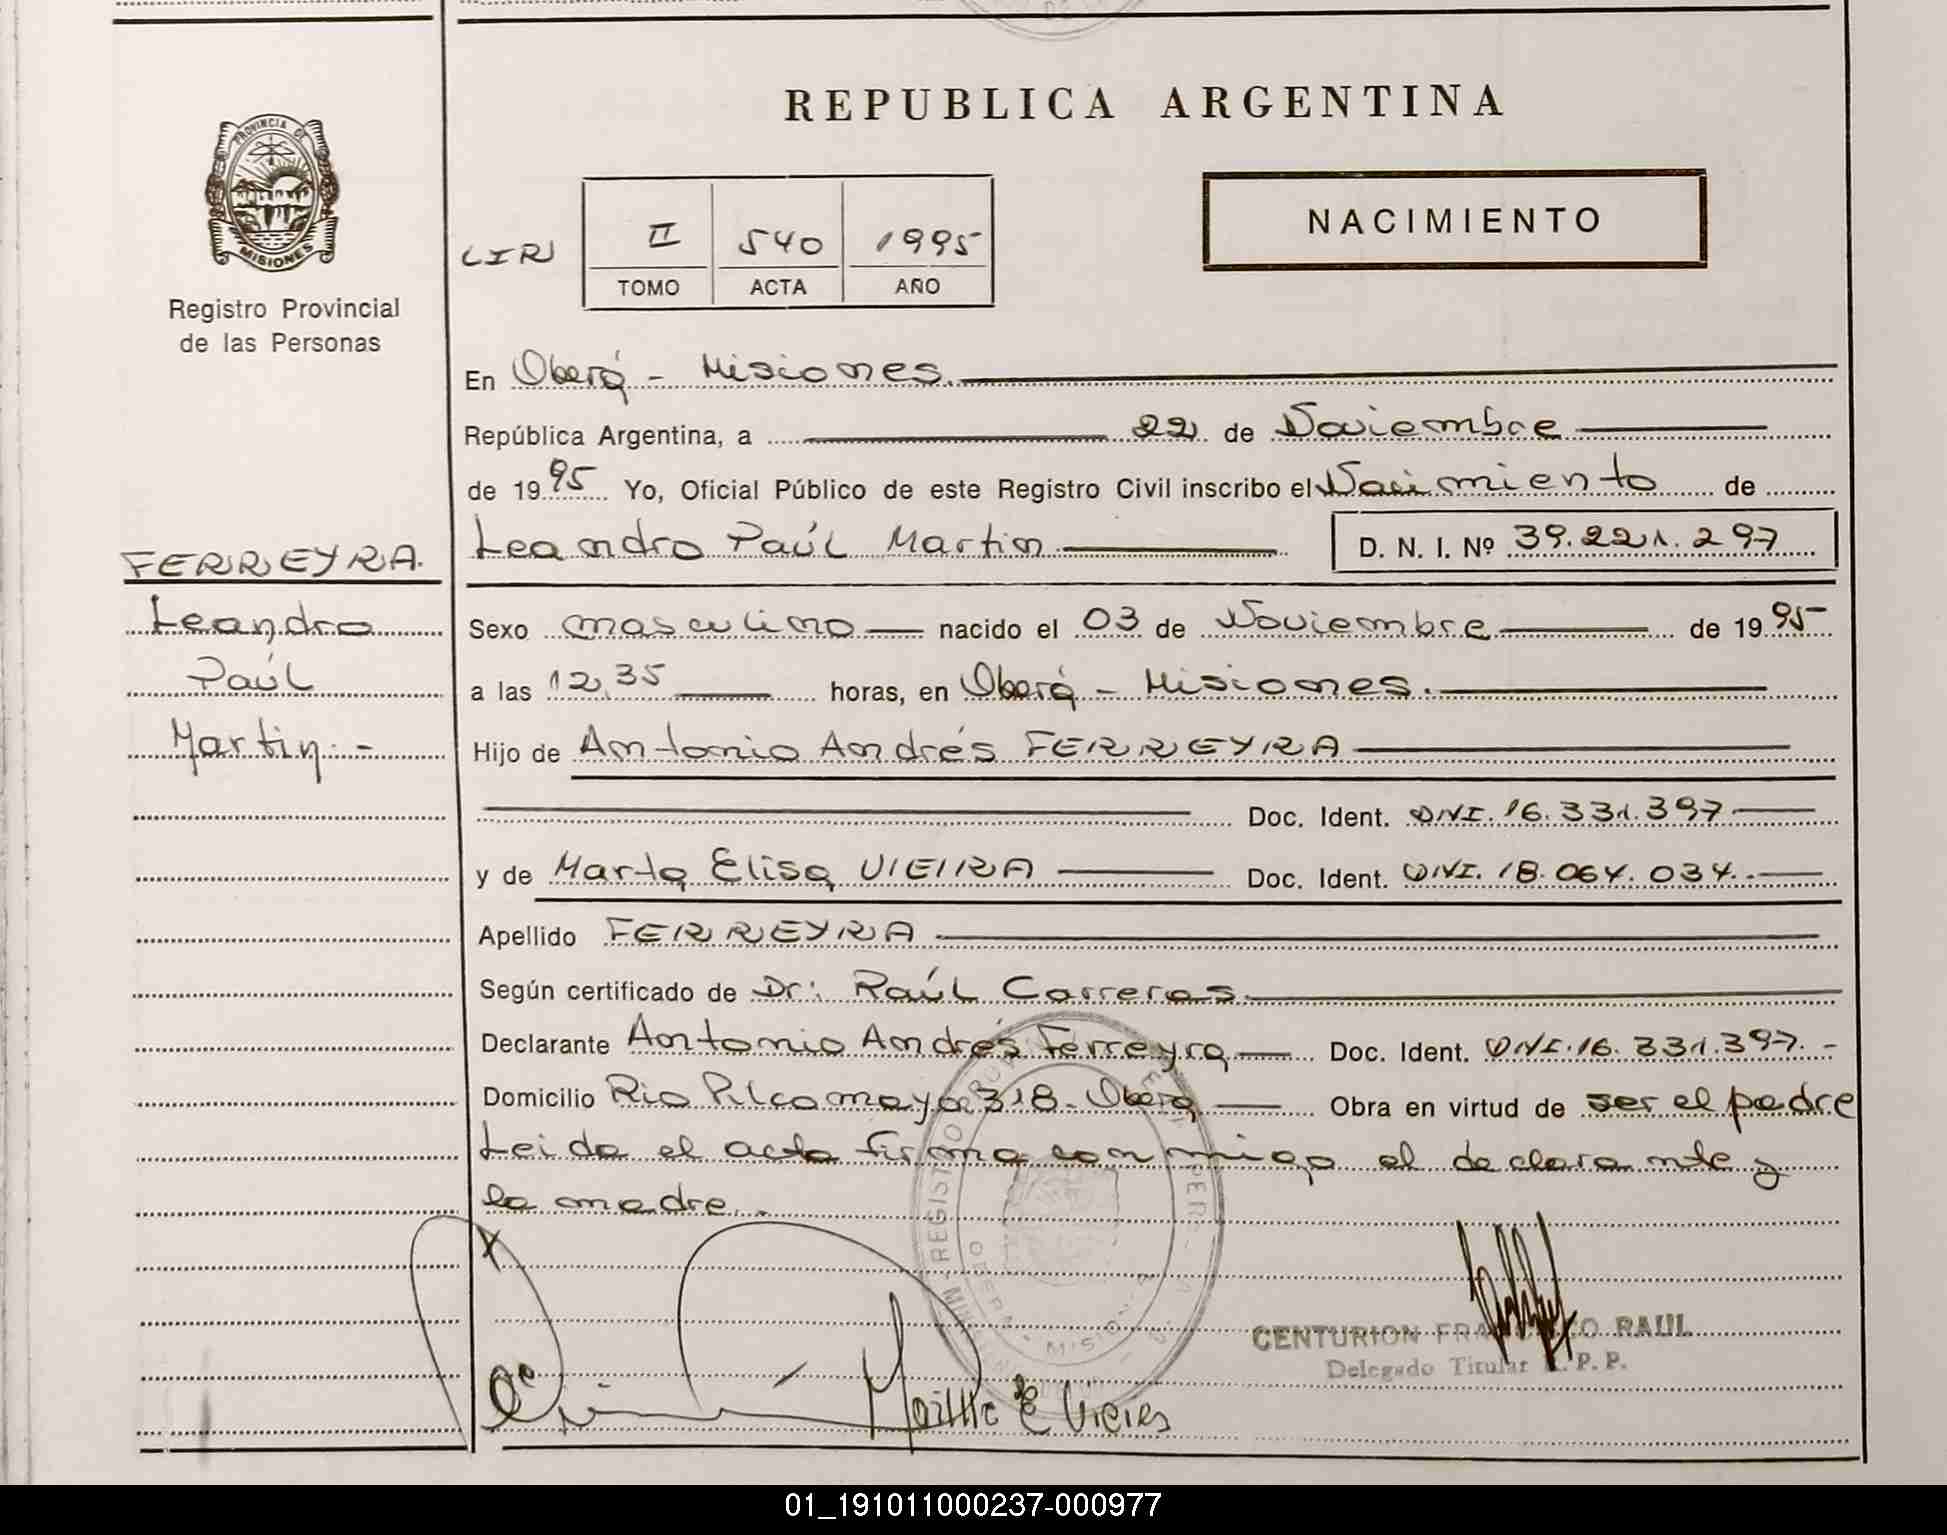 REPUBLICA ARGENTINA
PROVINCIA DE
MISIONES
Registro Provincial
de las Personas
LIR II 540 1995
TOMO ACTA AÑO
NACIMIENTO
En Oberá - Misiones.
República Argentina, a 22 de Noviembre
de 1995 Yo, Oficial Público de este Registro Civil inscribo el Nacimiento de
Leandro Paúl Martin D. N. I. Nº 39.221.297
FERREYRA.
Leandro
Paúl
Martin.-
Sexo masculino nacido el 03 de Noviembre de 1995
a las 12,35 horas, en Oberá - Misiones.
Hijo de Antonio Andrés FERREYRA
Doc. Ident. DNI. 16.331.397
y de Marta Elisa VIEIRA Doc. Ident. DNI. 18.064.034.
Apellido FERREYRA
Según certificado de Dr: Raúl Carreras.
Declarante Antonio Andrés Ferreyra Doc. Ident. DNI. 16.331.397.-
Domicilio Rio Pilcomayo 318- Oberá Obra en virtud de ser el padre
Leida el acta firma conmigo el declarante y
la madre.
CENTURION FRANCISCO RAUL
Delegado Titular R. P. P.
01_191011000237-000977